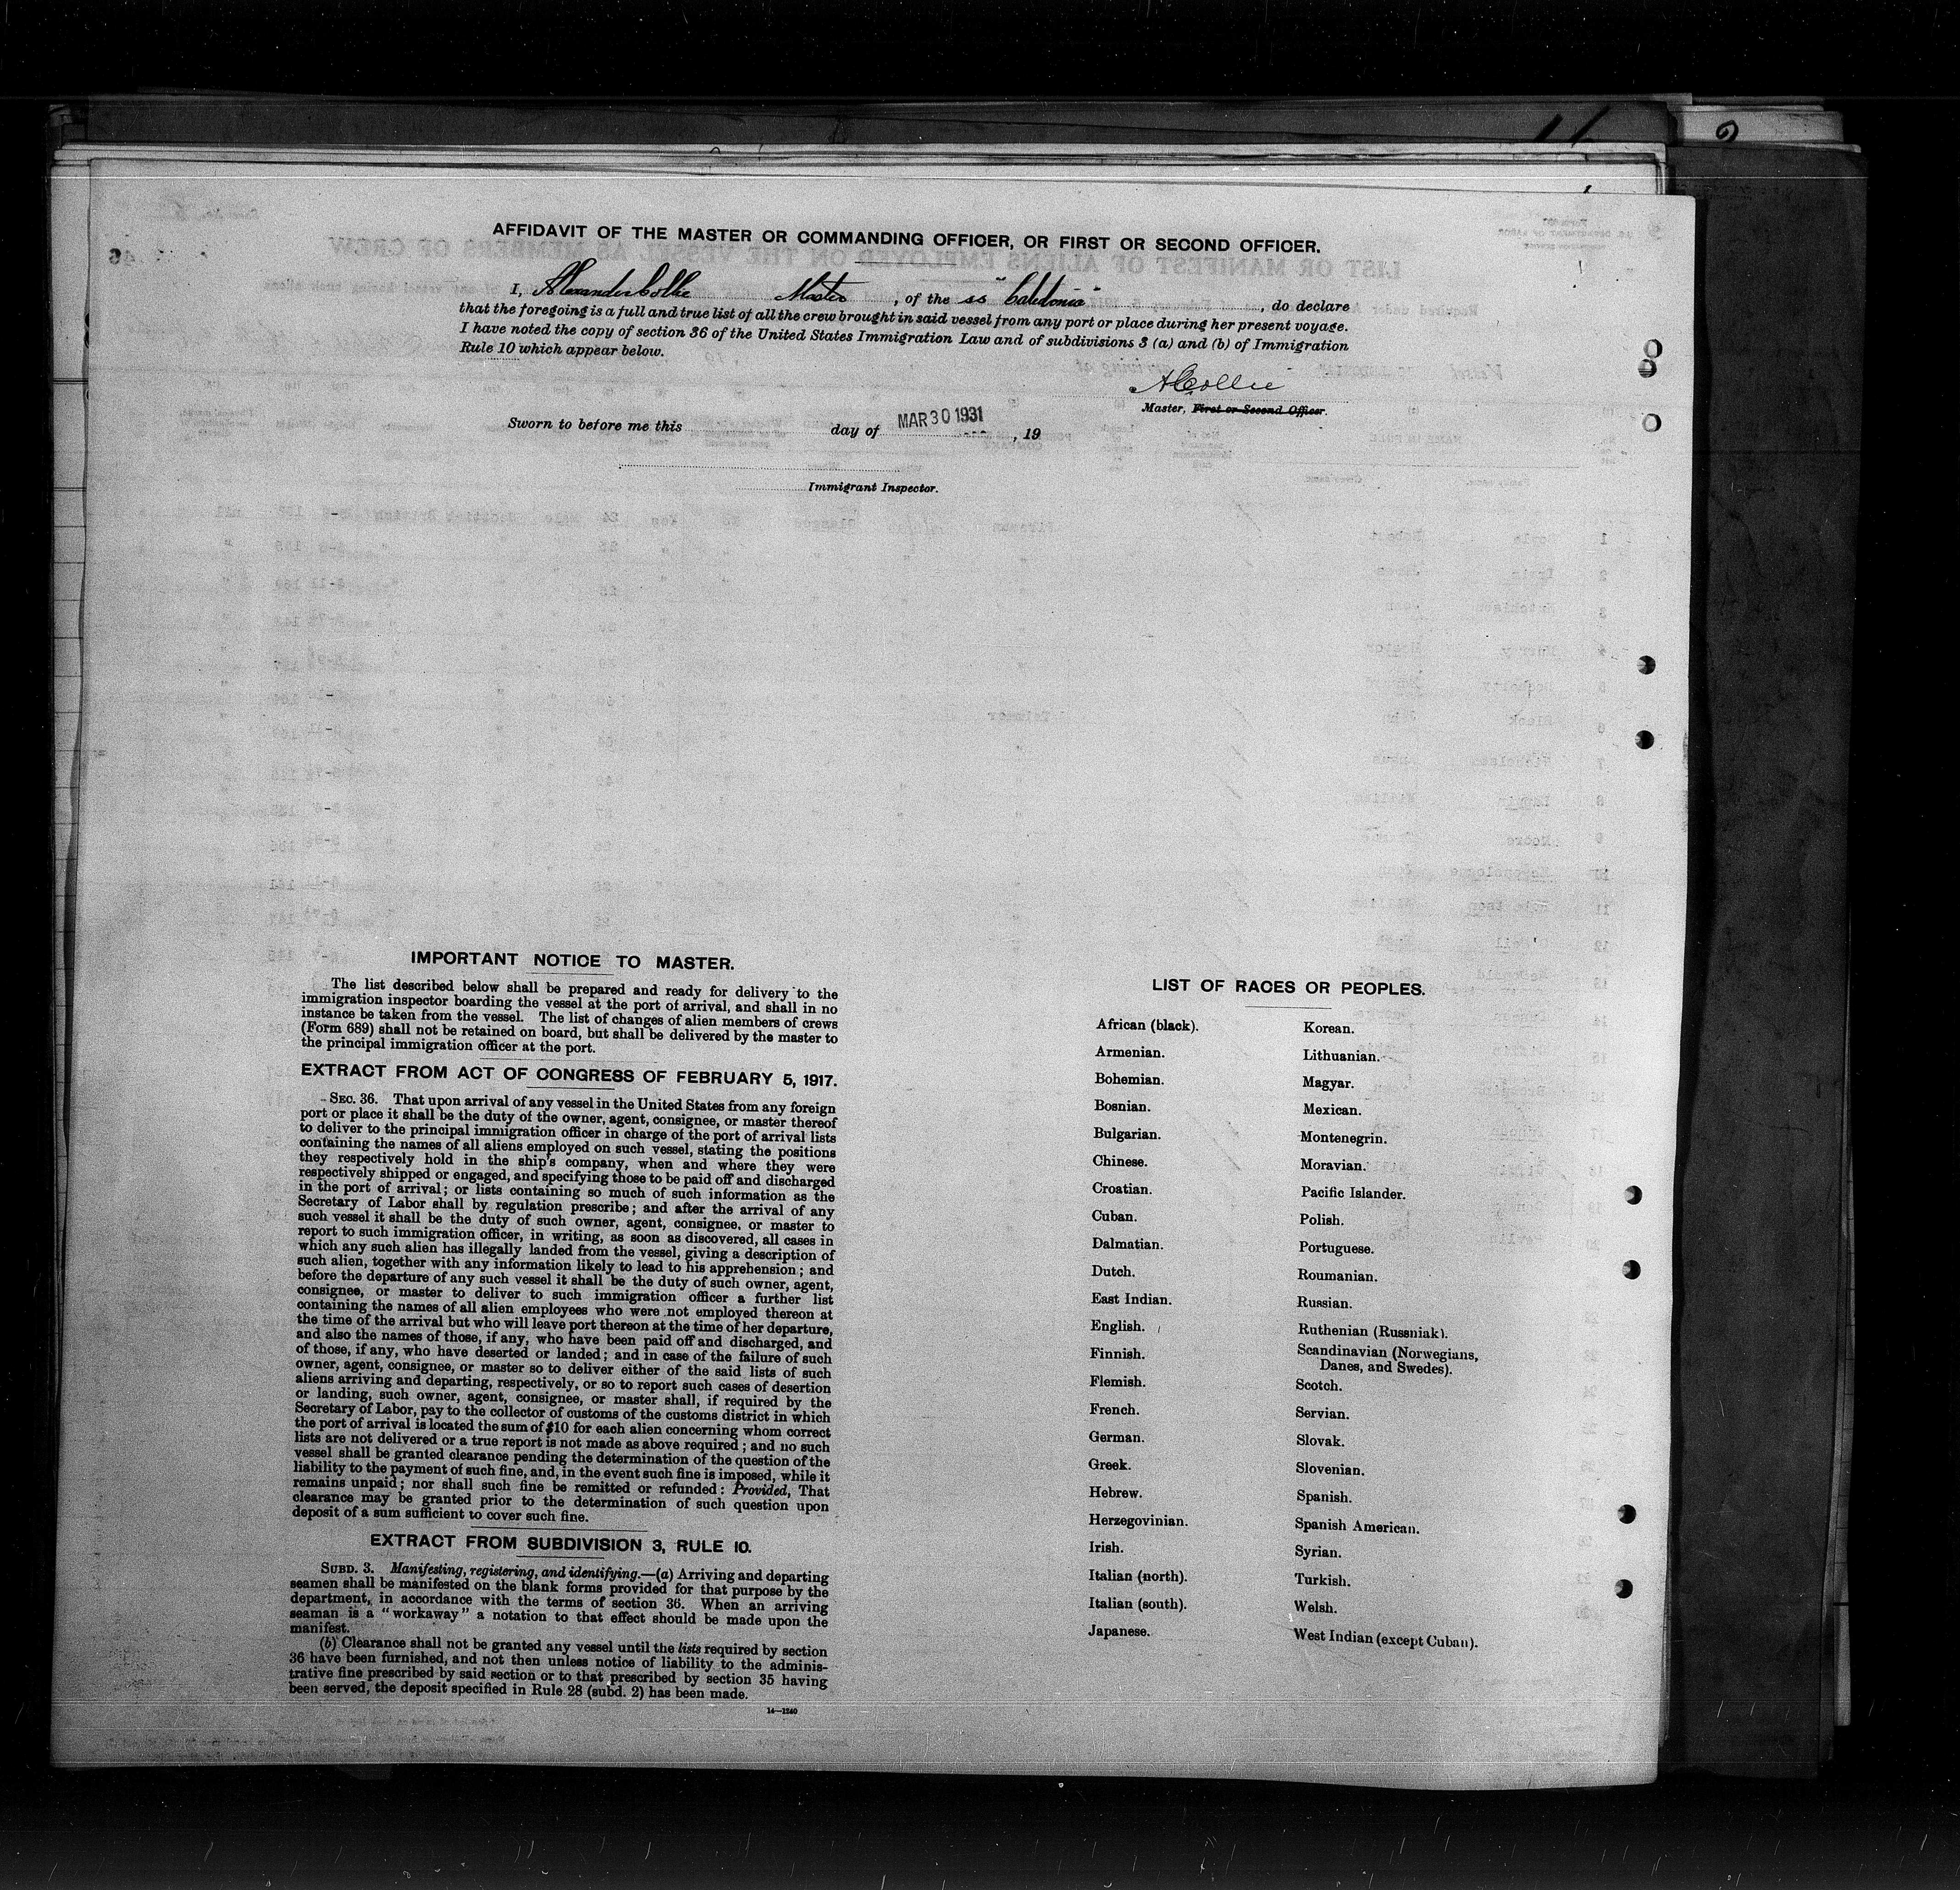 AFFIDAVIT OF THE MASTER OR COMMANDING OFFICER, OR FIRST OR SECOND OFFICER.
I, Alexander Collie Master, of the ss "Caledonia", do declare
that the foregoing is a full and true list of all the crew brought in said vessel from any port or place during her present voyage.
I have noted the copy of section 36 of the United States Immigration Law and of subdivisions 3 (a) and (b) of Immigration
Rule 10 which appear below.
A Collie
Master, First or Second Officer.
Sworn to before me this day of MAR 30 1931, 19
Immigrant Inspector.
IMPORTANT NOTICE TO MASTER.
The list described below shall be prepared and ready for delivery to the
immigration inspector boarding the vessel at the port of arrival, and shall in no
instance be taken from the vessel. The list of changes of alien members of crews
(Form 689) shall not be retained on board, but shall be delivered by the master to
the principal immigration officer at the port.
EXTRACT FROM ACT OF CONGRESS OF FEBRUARY 5, 1917.
SEC. 36. That upon arrival of any vessel in the United States from any foreign
port or place it shall be the duty of the owner, agent, consignee, or master thereof
to deliver to the principal immigration officer in charge of the port of arrival lists
containing the names of all aliens employed on such vessel, stating the positions
they respectively hold in the ship's company, when and where they were
respectively shipped or engaged, and specifying those to be paid off and discharged
in the port of arrival; or lists containing so much of such information as the
Secretary of Labor shall by regulation prescribe; and after the arrival of any
such vessel it shall be the duty of such owner, agent, consignee, or master to
report to such immigration officer, in writing, as soon as discovered, all cases in
which any such alien has illegally landed from the vessel, giving a description of
such alien, together with any information likely to lead to his apprehension; and
before the departure of any such vessel it shall be the duty of such owner, agent,
consignee, or master to deliver to such immigration officer a further list
containing the names of all alien employees who were not employed thereon at
the time of the arrival but who will leave port thereon at the time of her departure,
and also the names of those, if any, who have been paid off and discharged, and
of those, if any, who have deserted or landed; and in case of the failure of such
owner, agent, consignee, or master so to deliver either of the said lists of such
aliens arriving and departing, respectively, or so to report such cases of desertion
or landing, such owner, agent, consignee, or master shall, if required by the
Secretary of Labor, pay to the collector of customs of the customs district in which
the port of arrival is located the sum of $10 for each alien concerning whom correct
lists are not delivered or a true report is not made as above required; and no such
vessel shall be granted clearance pending the determination of the question of the
liability to the payment of such fine, and, in the event such fine is imposed, while it
remains unpaid; nor shall such fine be remitted or refunded: Provided, That
clearance may be granted prior to the determination of such question upon
deposit of a sum sufficient to cover such fine.
EXTRACT FROM SUBDIVISION 3, RULE 10.
SUBD. 3. Manifesting, registering, and identifying.—(a) Arriving and departing
seamen shall be manifested on the blank forms provided for that purpose by the
department, in accordance with the terms of section 36. When an arriving
seaman is a "workaway" a notation to that effect should be made upon the
manifest.
(b) Clearance shall not be granted any vessel until the lists required by section
36 have been furnished, and not then unless notice of liability to the adminis-
trative fine prescribed by said section or to that prescribed by section 35 having
been served, the deposit specified in Rule 28 (subd. 2) has been made.
14—1240
LIST OF RACES OR PEOPLES.
African (black).
Armenian.
Bohemian.
Bosnian.
Bulgarian.
Chinese.
Croatian.
Cuban.
Dalmatian.
Dutch.
East Indian.
English.
Finnish.
Flemish.
French.
German.
Greek.
Hebrew.
Herzegovinian.
Irish.
Italian (north).
Italian (south).
Japanese.
Korean.
Lithuanian.
Magyar.
Mexican.
Montenegrin.
Moravian.
Pacific Islander.
Polish.
Portuguese.
Roumanian.
Russian.
Ruthenian (Russniak).
Scandinavian (Norwegians,
Danes, and Swedes).
Scotch.
Servian.
Slovak.
Slovenian.
Spanish.
Spanish American.
Syrian.
Turkish.
Welsh.
West Indian (except Cuban).